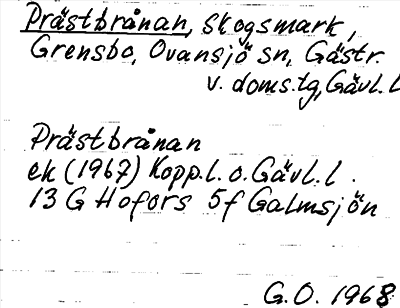 Prästbrånan, skogsmark,
Grensbo, Ovansjö sn, Gästr.
v. doms.tg, Gävl. l
Prästbrånan
ek (1967) Kopp. l. o. Gävl. l.
13 G Hofors 5f Galmsjön
G.O. 1968